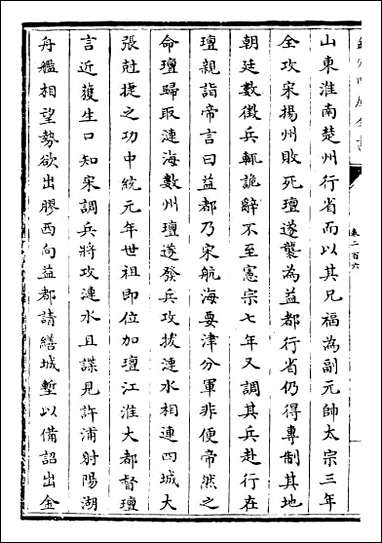 卷二百六
山東淮南楚州行省而以其兄福為副元帥太宗三年
全攻宋揚州敗死璮遂襲為益都行省仍得專制其地
朝廷數徵兵輒詭辭不至憲宗七年又調其兵赴行在
璮親詣帝言曰益都乃宋航海要津分軍非便帝然之
命璮歸取漣海數州璮遂發兵攻拔漣水相連四城大
張尅捷之功中統元年世祖即位加璮江淮大都督璮
言近獲生口知宋調兵將攻漣水且諜見許浦射陽湖
舟艦相望勢欲出膠西向益都請繕城塹以備詔出金